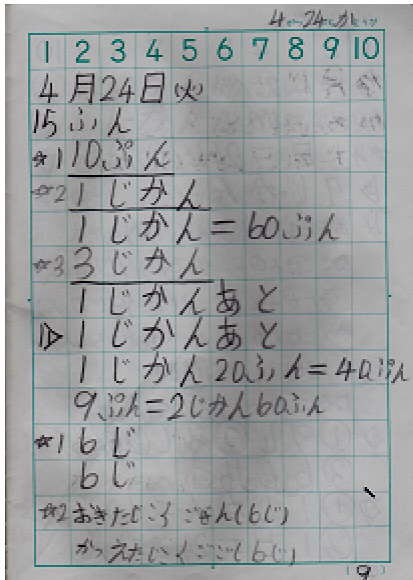 4がつ24にちかようび
1 2 3 4 5 6 7 8 9 10
4月24日(火)
15ふん
☆1 10ぷん
☆2 1じかん
1じかん=60ぷん
☆3 3じかん
1じかんあと
1▷1じかんあと
1じかん20ふん=40ぷん
9ぷん=2じかん60ふん
☆1 6じ
6じ
☆2 おきたじこくごぜん(6じ)
かっえたじこくごご(6じ)
(9)